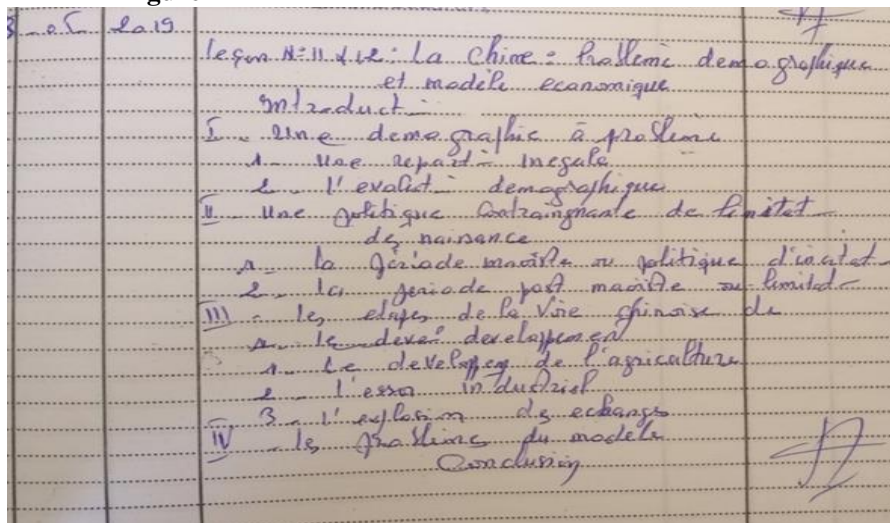 3-05 2019
leçon N=11 et 12: La Chine: Probleme demographique
et modèle economique
Introduct-
I- Une demographie à probleme
1- Une repart- inegale
2- l'evolut- demographique
II- Une politique Contraingnante de limitat-
des naisance
1- la periode maoiste ou politique d'incitat-
2- la periode post maoiste ou limitat-
III- les etapes de la Voie chinoise de
developpement
1- Le developpem de l'agriculture
2- l'essor industriel
3- l'explosion des echanges
IV- les problemes du modele
Conclusion